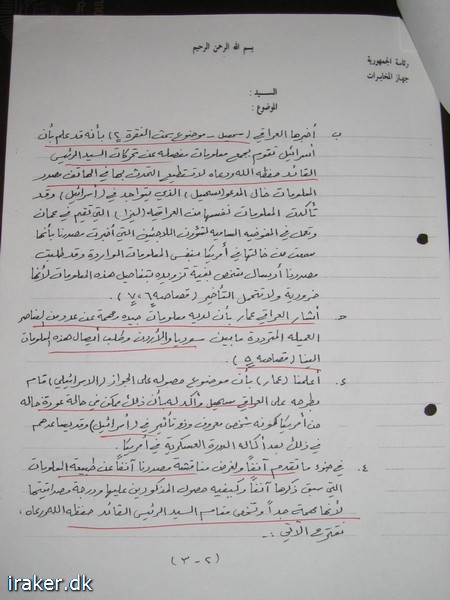 بسم الله الرحمن الرحيم
رئاسة الجمهورية
جهاز المخابرات
السيد :
الموضوع :
ب أخبرها العراقي (سهيل - موضوع بحث الفقرة ٢) بأنه قد علم بأن
اسرائيل تقوم بجمع معلومات مفصله عن تحركات السيد الرئيس
القائد حفظه الله ورعاه لا تستطيع التحدث بها في الهاتف مصدر
المعلومات خال المدعو (سهيل) الذي يتواجد في (اسرائيل) وقد
تأكدت المعلومات نفسها من العراقية (ليزا) التي تقيم في عمان
وتعمل في المفوضيه الساميه لشؤون اللاجئين التي أخبرت مصدرنا بأنها
سمعت من خالتها في أمريكا بنفس المعلومات الواردة وقد طلبت
مصدرنا ارسال شخص بغية تزويده بتفاصيل هذه المعلومات لأنها
ضرورية ولا تتحمل التأخير (قصاصة ٦ ، ٧) .
جـ أشار العراقي عمار بأن لديه معلومات جيده ومهمة عن عدد من العناصر
العميله المترددة ما بين سوريا والأردن وطلب أيصال هذه المعلومات
الينا (قصاصة ٥)
د . أعلمنا (عمار) بأن موضوع حصوله على الجواز (الاسرائيلي) قام
بطرحه على العراقي سهيل وأكد له بأن ذلك ممكن في حالة عودة خاله
من أمريكا كونه شخص معروف وذو تأثير في (اسرائيل) وقد يساعدهم
في ذلك بعد أكماله الدورة العسكرية في أمريكا .
٤ . في ضوء ما تقدم آنفاً ولغرض مناقشة مصدرنا آنفاً عن طبيعة المعلومات
التي سبق ذكرها آنفاً وكيفيه حصول المذكورين عليها ودرجة مصداقيتها
لأنها مهمة جداً وتخص مقام السيد الرئيس القائد حفظه الله ورعاه ،
نقترح الآتي :-
(٢ - ٣)
iraker.dk
iraker.dk